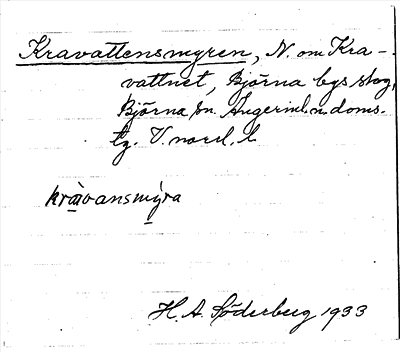 Kravattensmyren, N. om Kra-
vattnet, Björna bys skog,
Björna sn. Ångerml. n. doms.
tg. V. norrl. l
kràvansmýra
H. A. Söderberg 1933